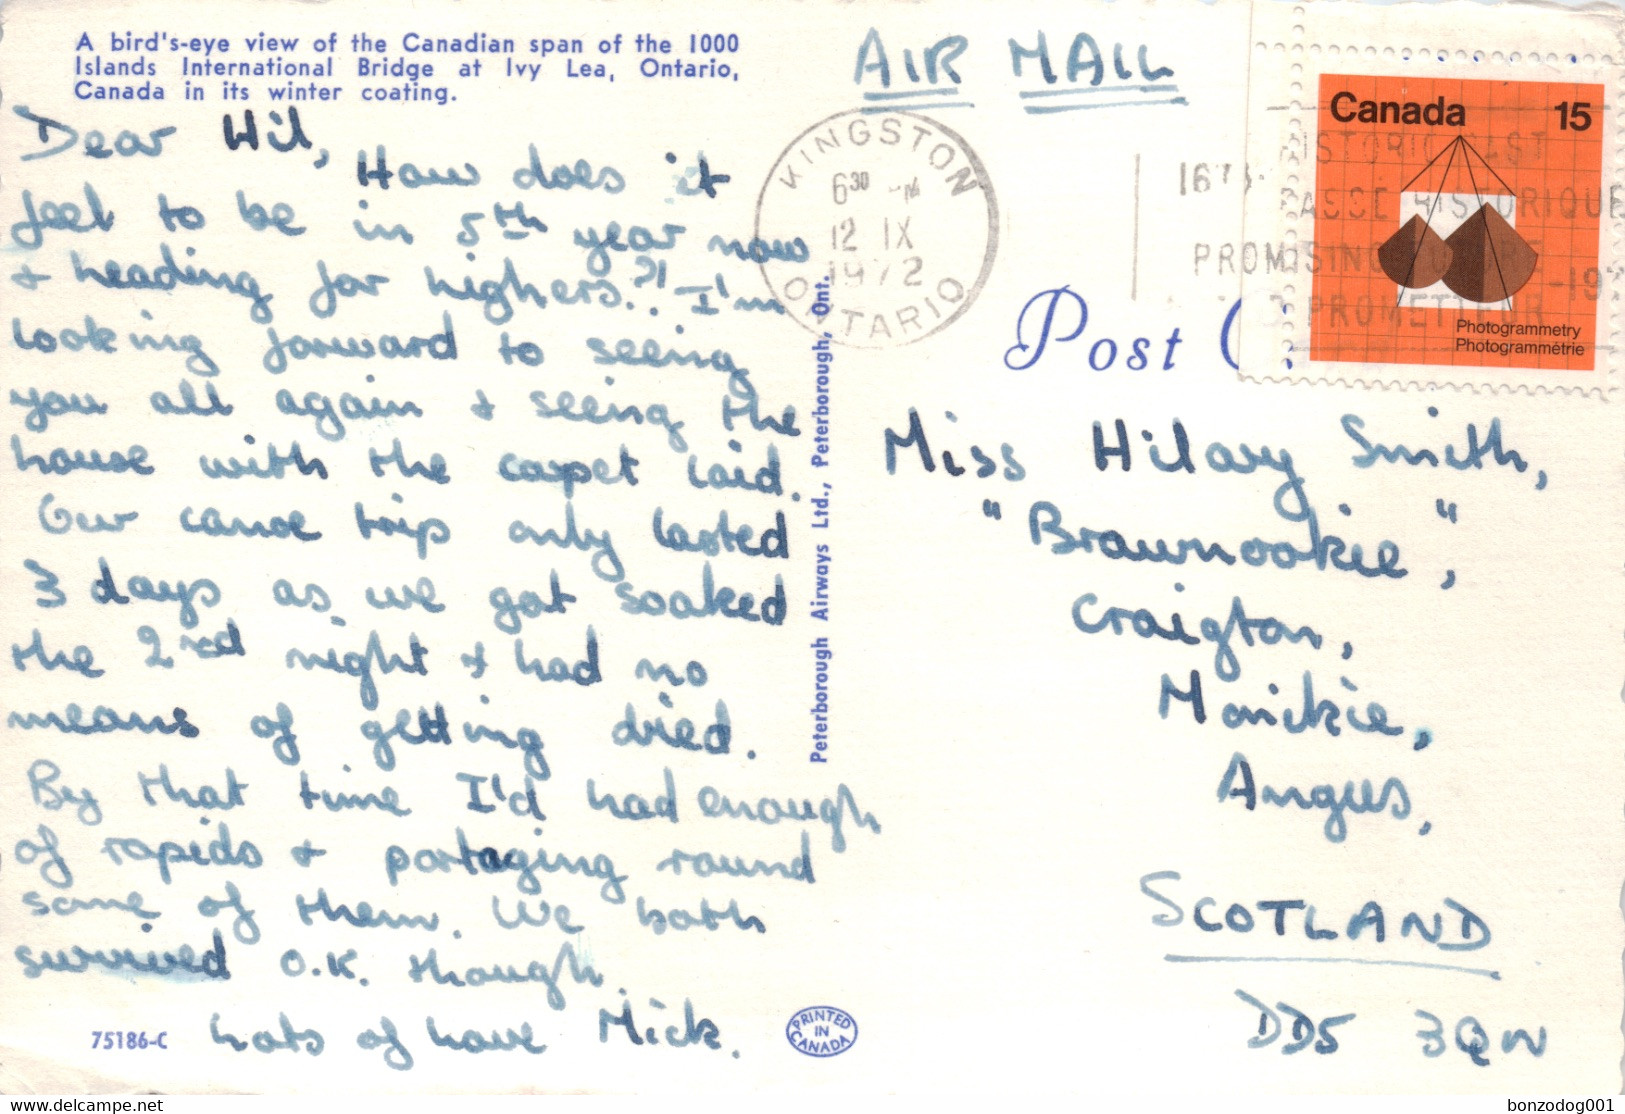 A bird's-eye view of the Canadian span of the 1000
Islands International Bridge at Ivy Lea, Ontario,
Canada in its winter coating.
Dear Hil,
How does it
feel to be in 5th year now
+ heading for highers?! I'm
looking forward to seeing
you all again + seeing the
house with the carpet laid.
Our canoe trip only lasted
3 days as we got soaked
the 2nd night + had no
means of getting dried.
By that time I'd had enough
of rapids + portaging round
some of them. We both
survived O.K. though.
Lots of love Mick.
75186-C
Peterborough Airways Ltd., Peterborough, Ont.
PRINTED
IN
CANADA
AIR MAIL
KINGSTON
6 30
12 IX
1972
ONTARIO
HISTORIC PAST
PASSÉ HISTORIQUE
Canada 15
Photogrammetry
Photogrammétrie
Post
Miss Hilary Smith,
"Brawnookie",
Craigton,
Monikie,
Angus,
SCOTLAND
DD5 3QW
delcampe.net
bonzodog001